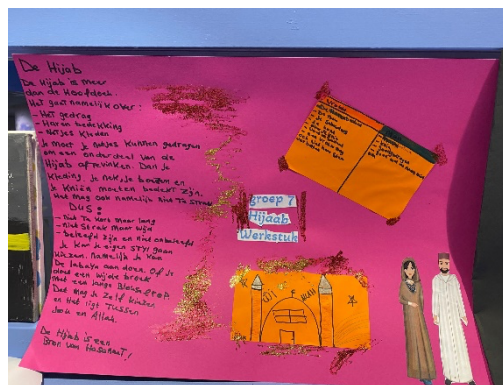 De Hijab
De Hijab is meer
dan de Hoofdoek.
Het gaat namelijk over:
- Het gedrag
- Haren bedekking
- Netjes Kleden
Je moet je netjes kunnen gedragen
om een onderdeel van de
Hijab af te vinken. Dan je
Kleding, je Nek, je
Knieën moeten bedekt zijn.
Het mag ook namelijk niet Te strak
DUS:
- Niet Te Kort Maar lang
- Niet Strak Maar wijd
- Beleefd zijn en niet onbeleefd
Je Kan je eigen STYL gaan
Kiezen. Namelijk je Kan
De Jabaya aan doen. Of je
doet een wijde broek
met een lange Bloes erop.
Dat mag je Zelf kiezen
en Het ligt Tussen
Jou en Allah.
De Hijab is een
Bron van Hasanaat!
groep 7
Hijaab
Werkstuk